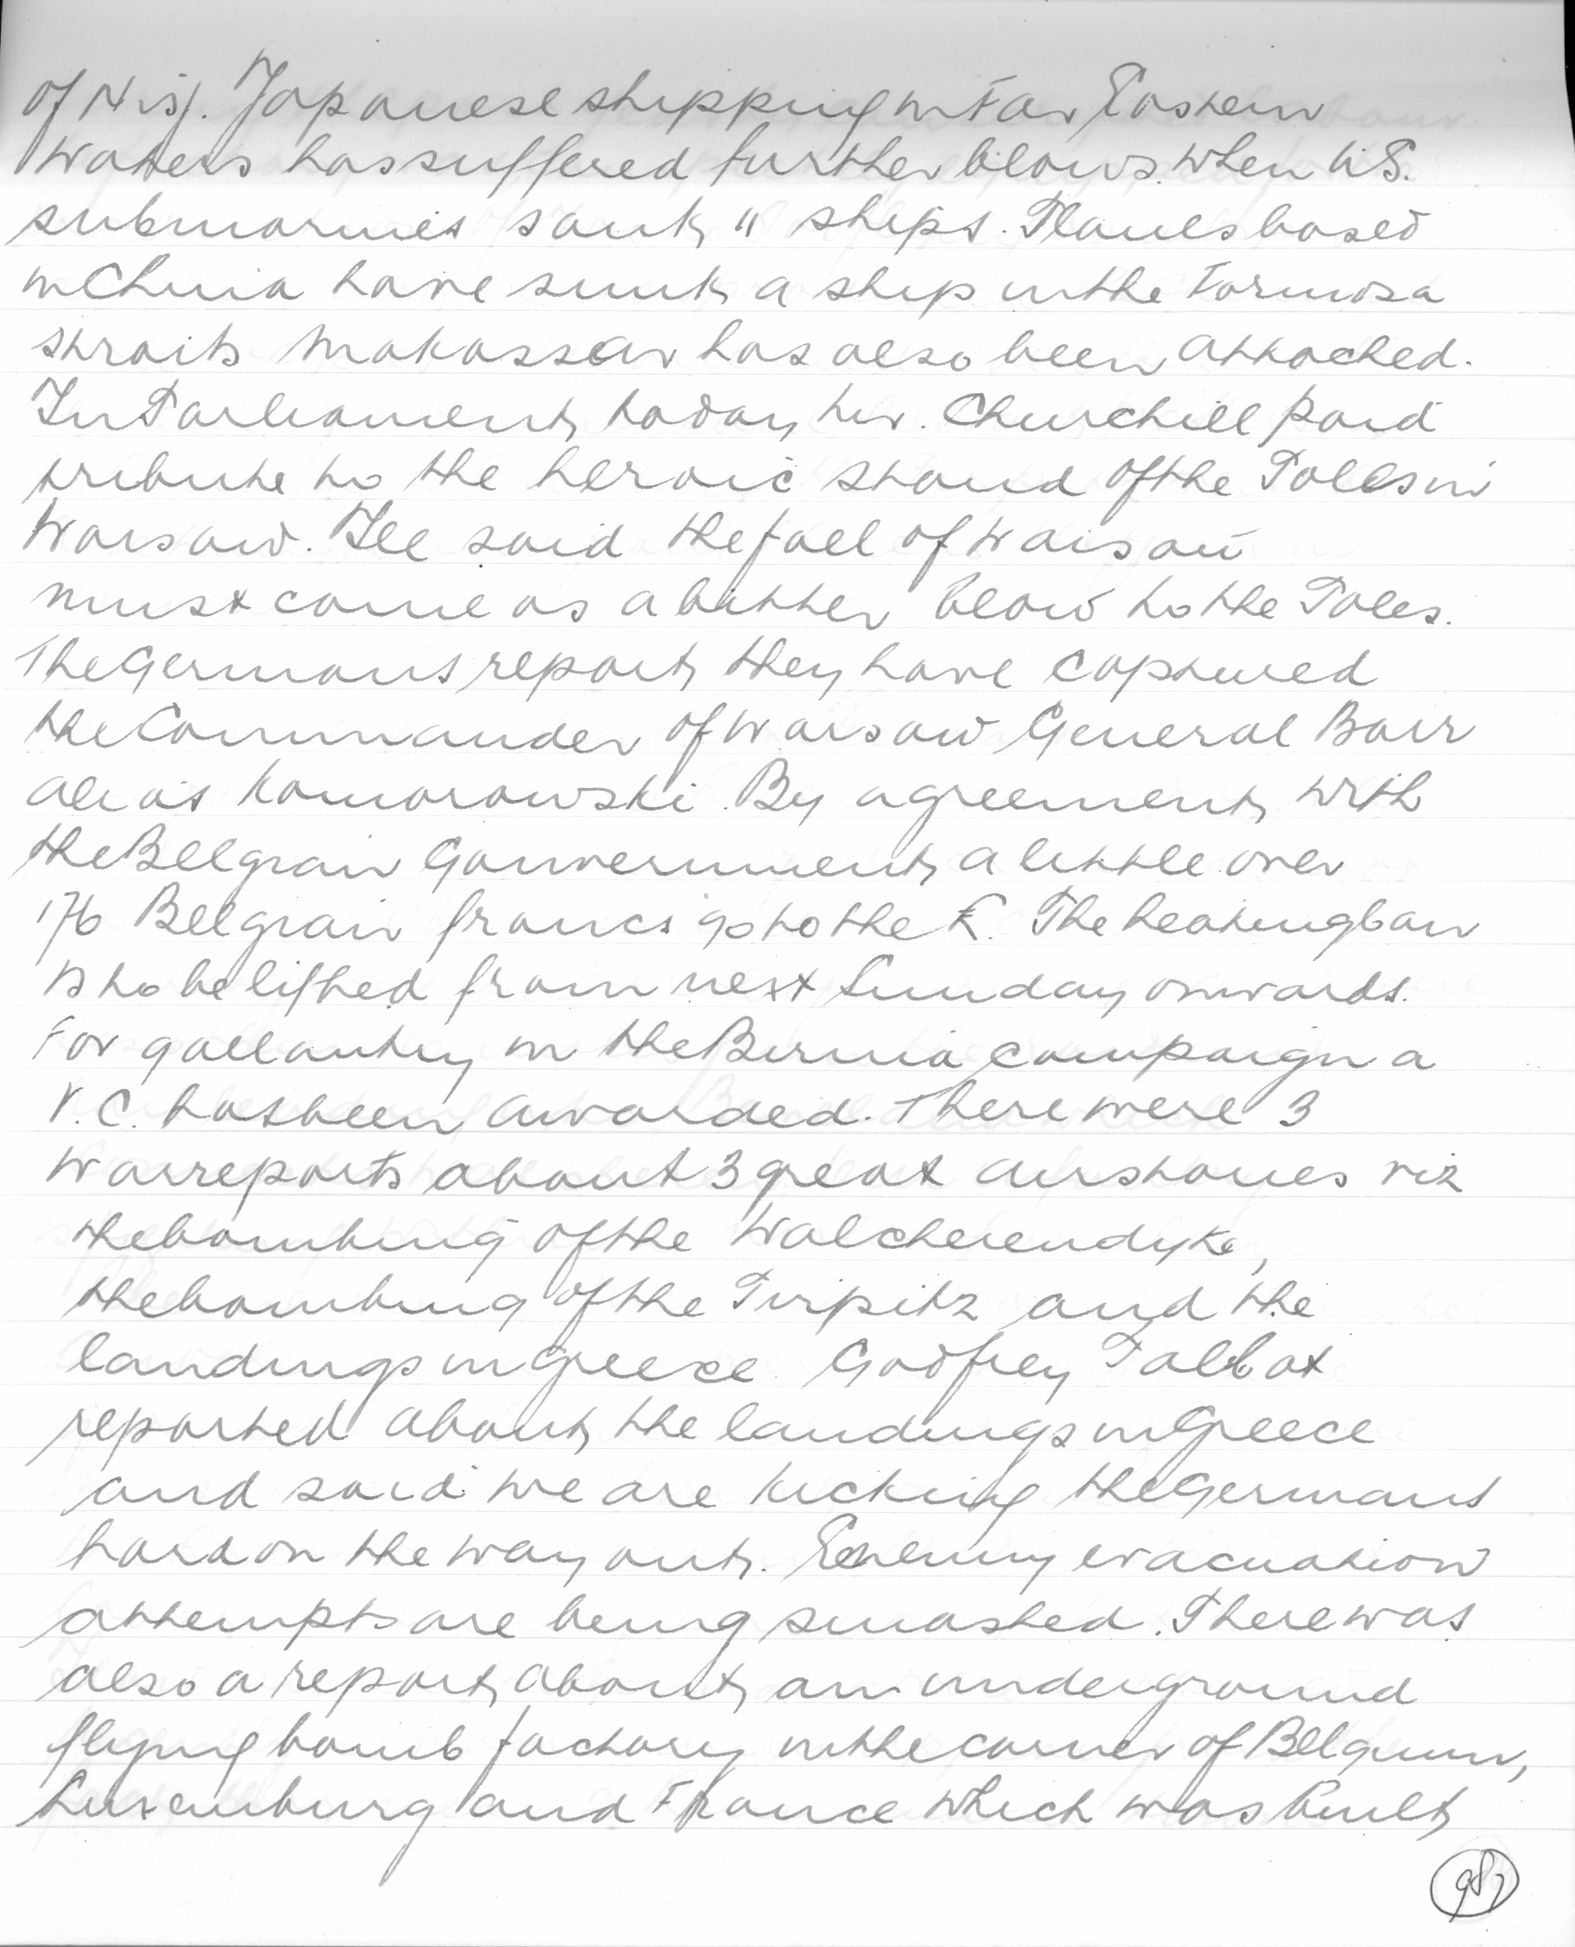 of Nisj. Japanese shipping in Far Eastern
waters has suffered further blows when U.S.
submarines sank 11 ships. Planes based
in China have sunk a ship in the Formosa
straits Makassar has also been attacked.
In Parliament today Mr. Churchill paid
tribute to the heroic stand of the Poles in
Warsaw. He said the fall of Warsaw
must come as a bitter blow to the Poles.
The Germans report they have captured
the Commander of Warsaw General Borr
alias Komorowski. By agreement with
the Belgian Gouvernment a little over
176 Belgian francs go to the £. The heating ban
is to be lifted from next Sunday onwards.
For gallantry in the Birma campaign a
V.C. has been awarded. There were 3
warreports about 3 great airstories viz
the bombing of the Walcherendyke,
the bombing of the Tirpitz and the
landings in Greece Godfrey Talbot
reported about the landings in Greece
and said we are kicking the Germans
hard on the way out. Enemy evacuation
attempts are being smashed. There was
also a report about an underground
flying bomb factory in the corner of Belgium,
Luxemburg and France which was built
987